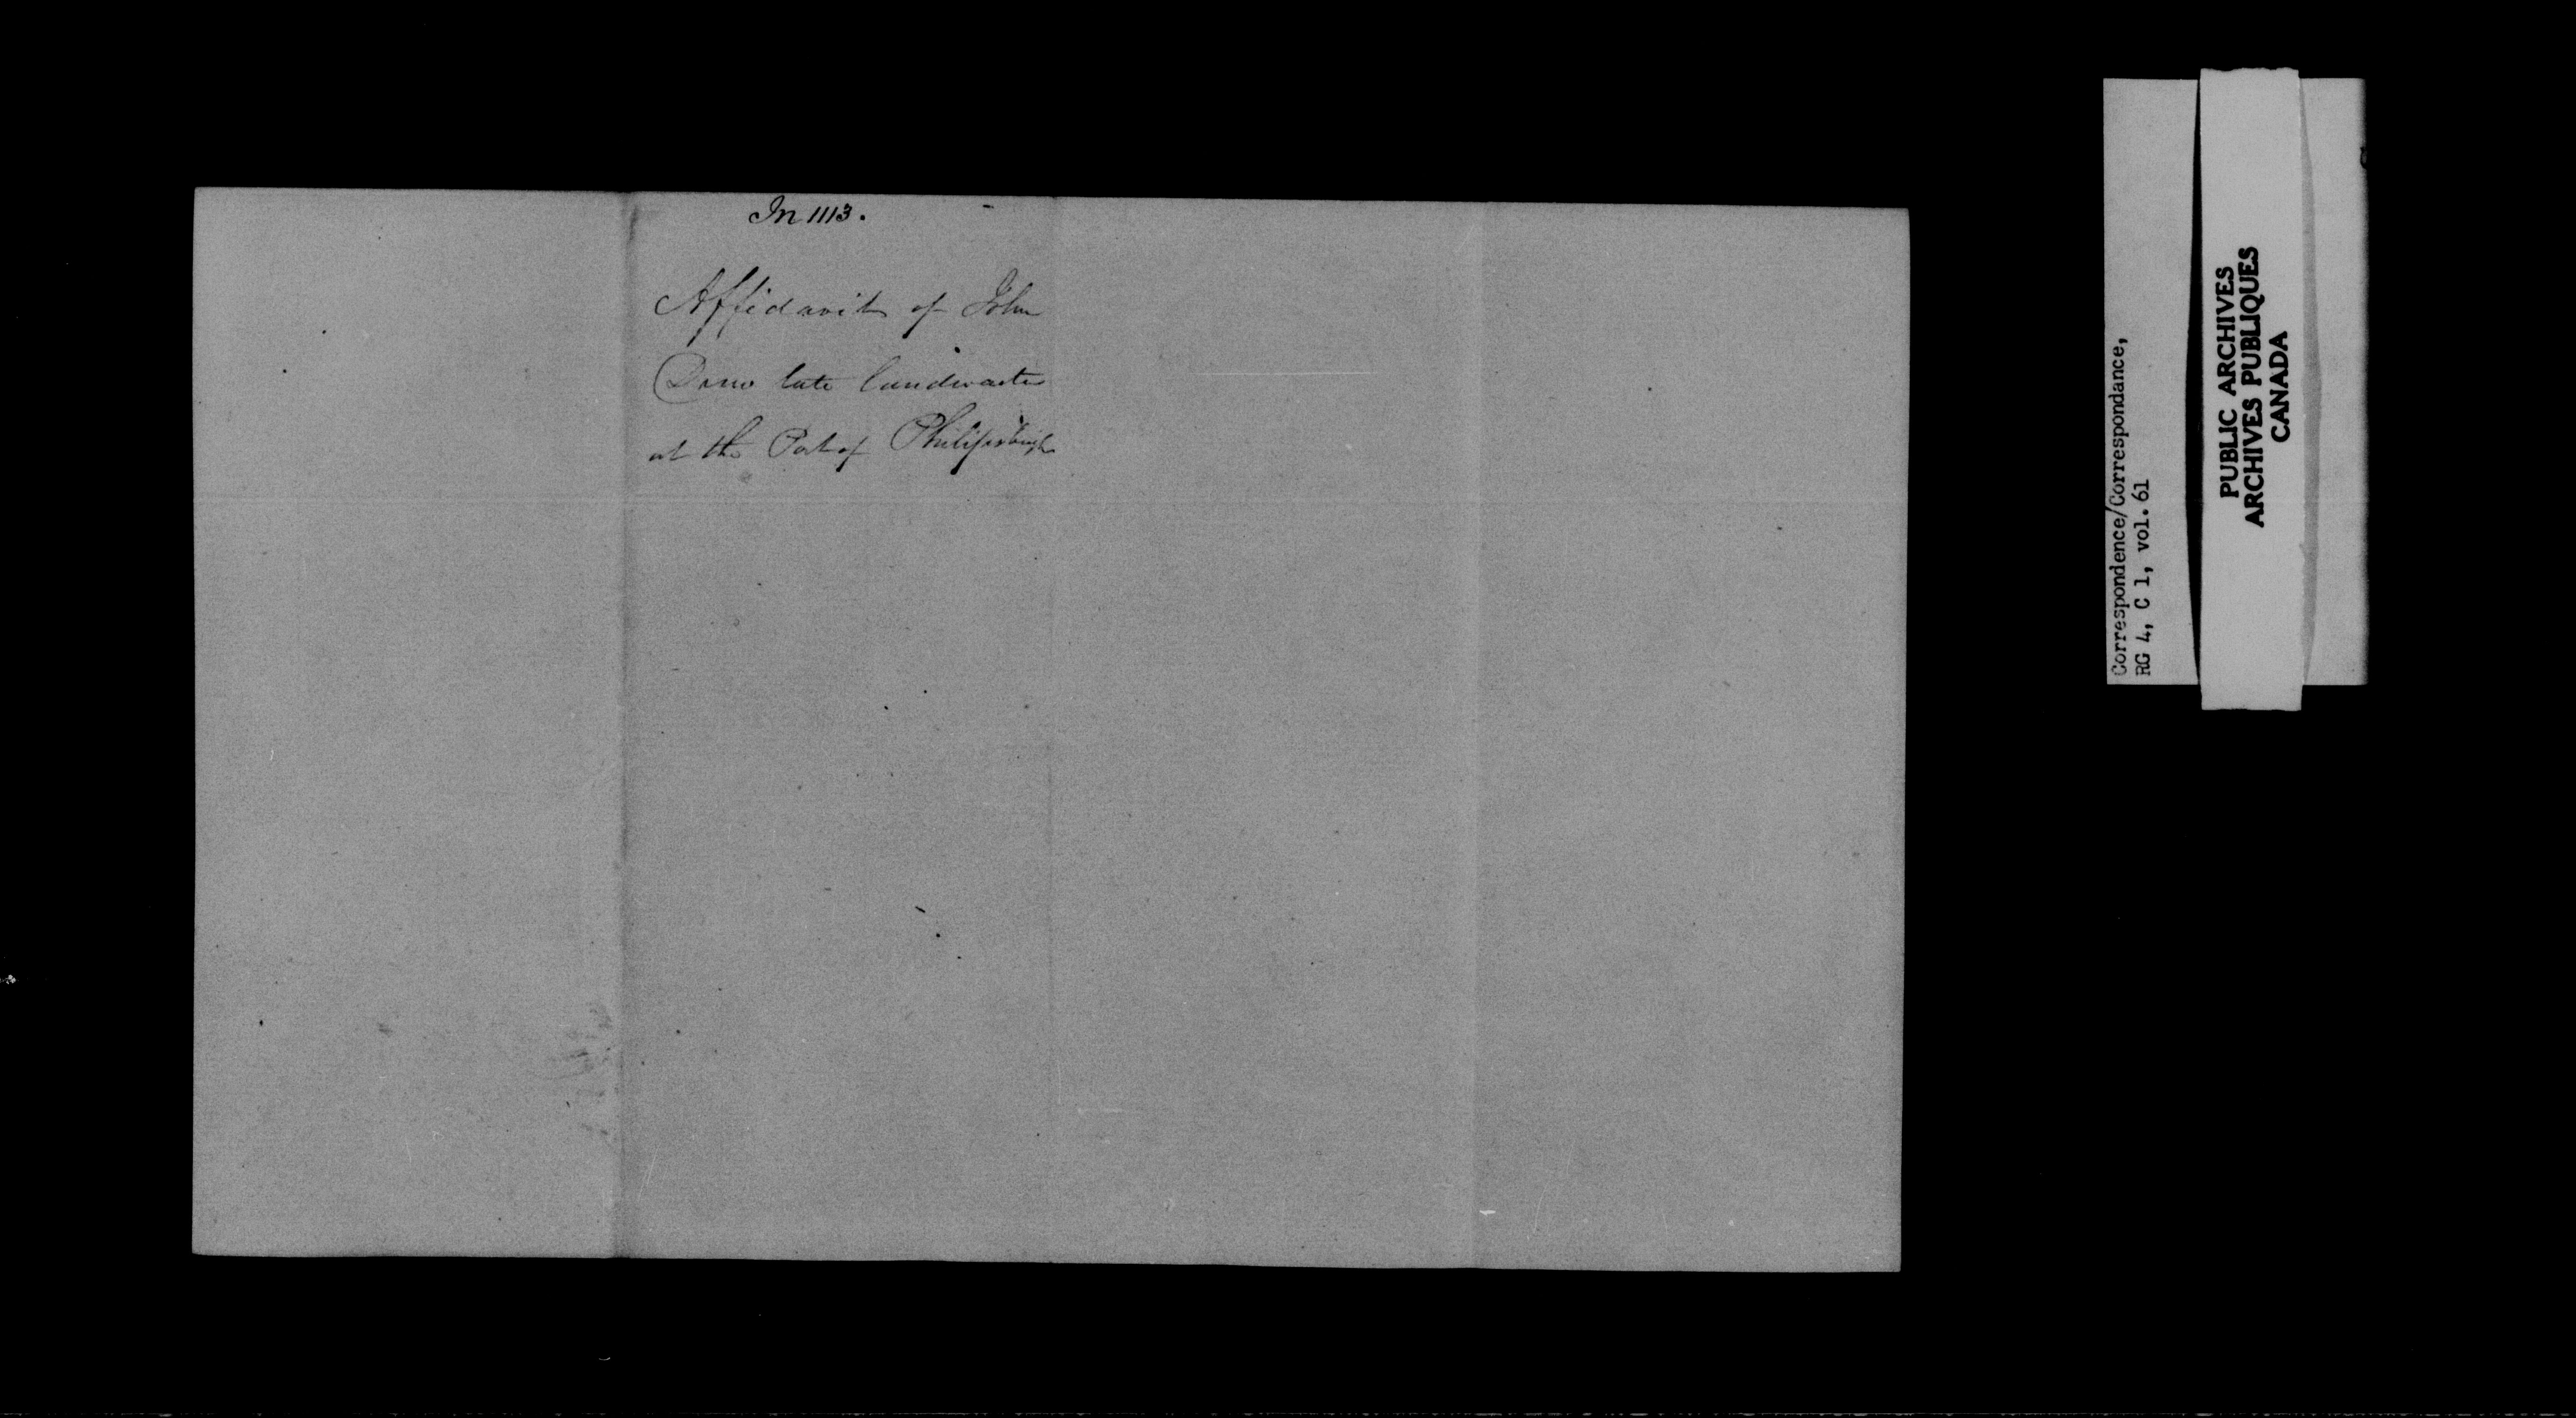 In 1113.
Affidavit of John
late landwaiter
at the Port of Philipsburgh
Correspondence/Correspondance,
RG 4, C 1, vol. 61
PUBLIC ARCHIVES
ARCHIVES PUBLIQUES
CANADA